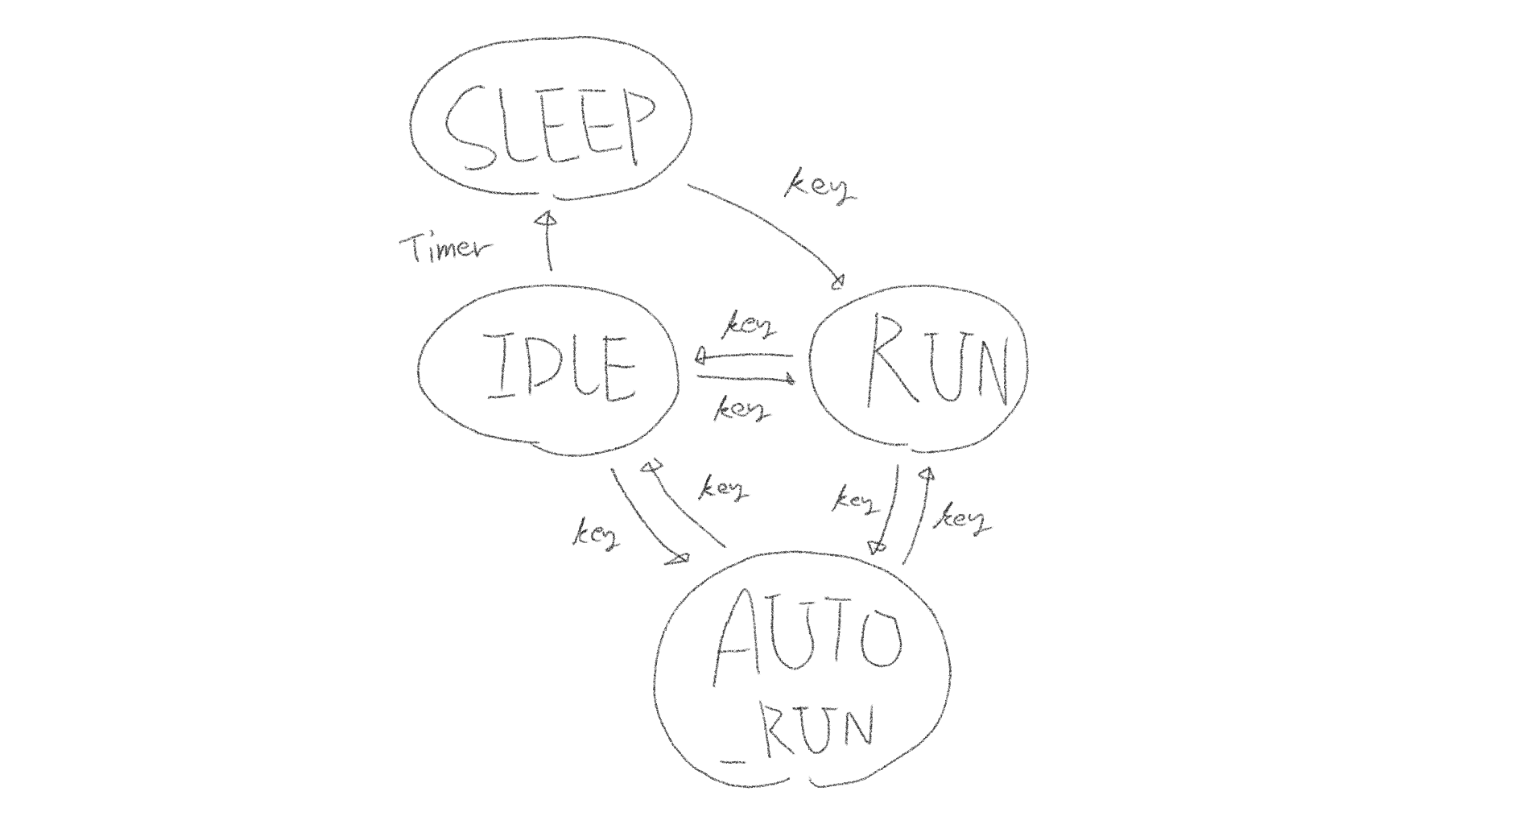 SLEEP
key
Timer
IDLE
key
key
RUN
key
key
key
key
AUTO
_RUN